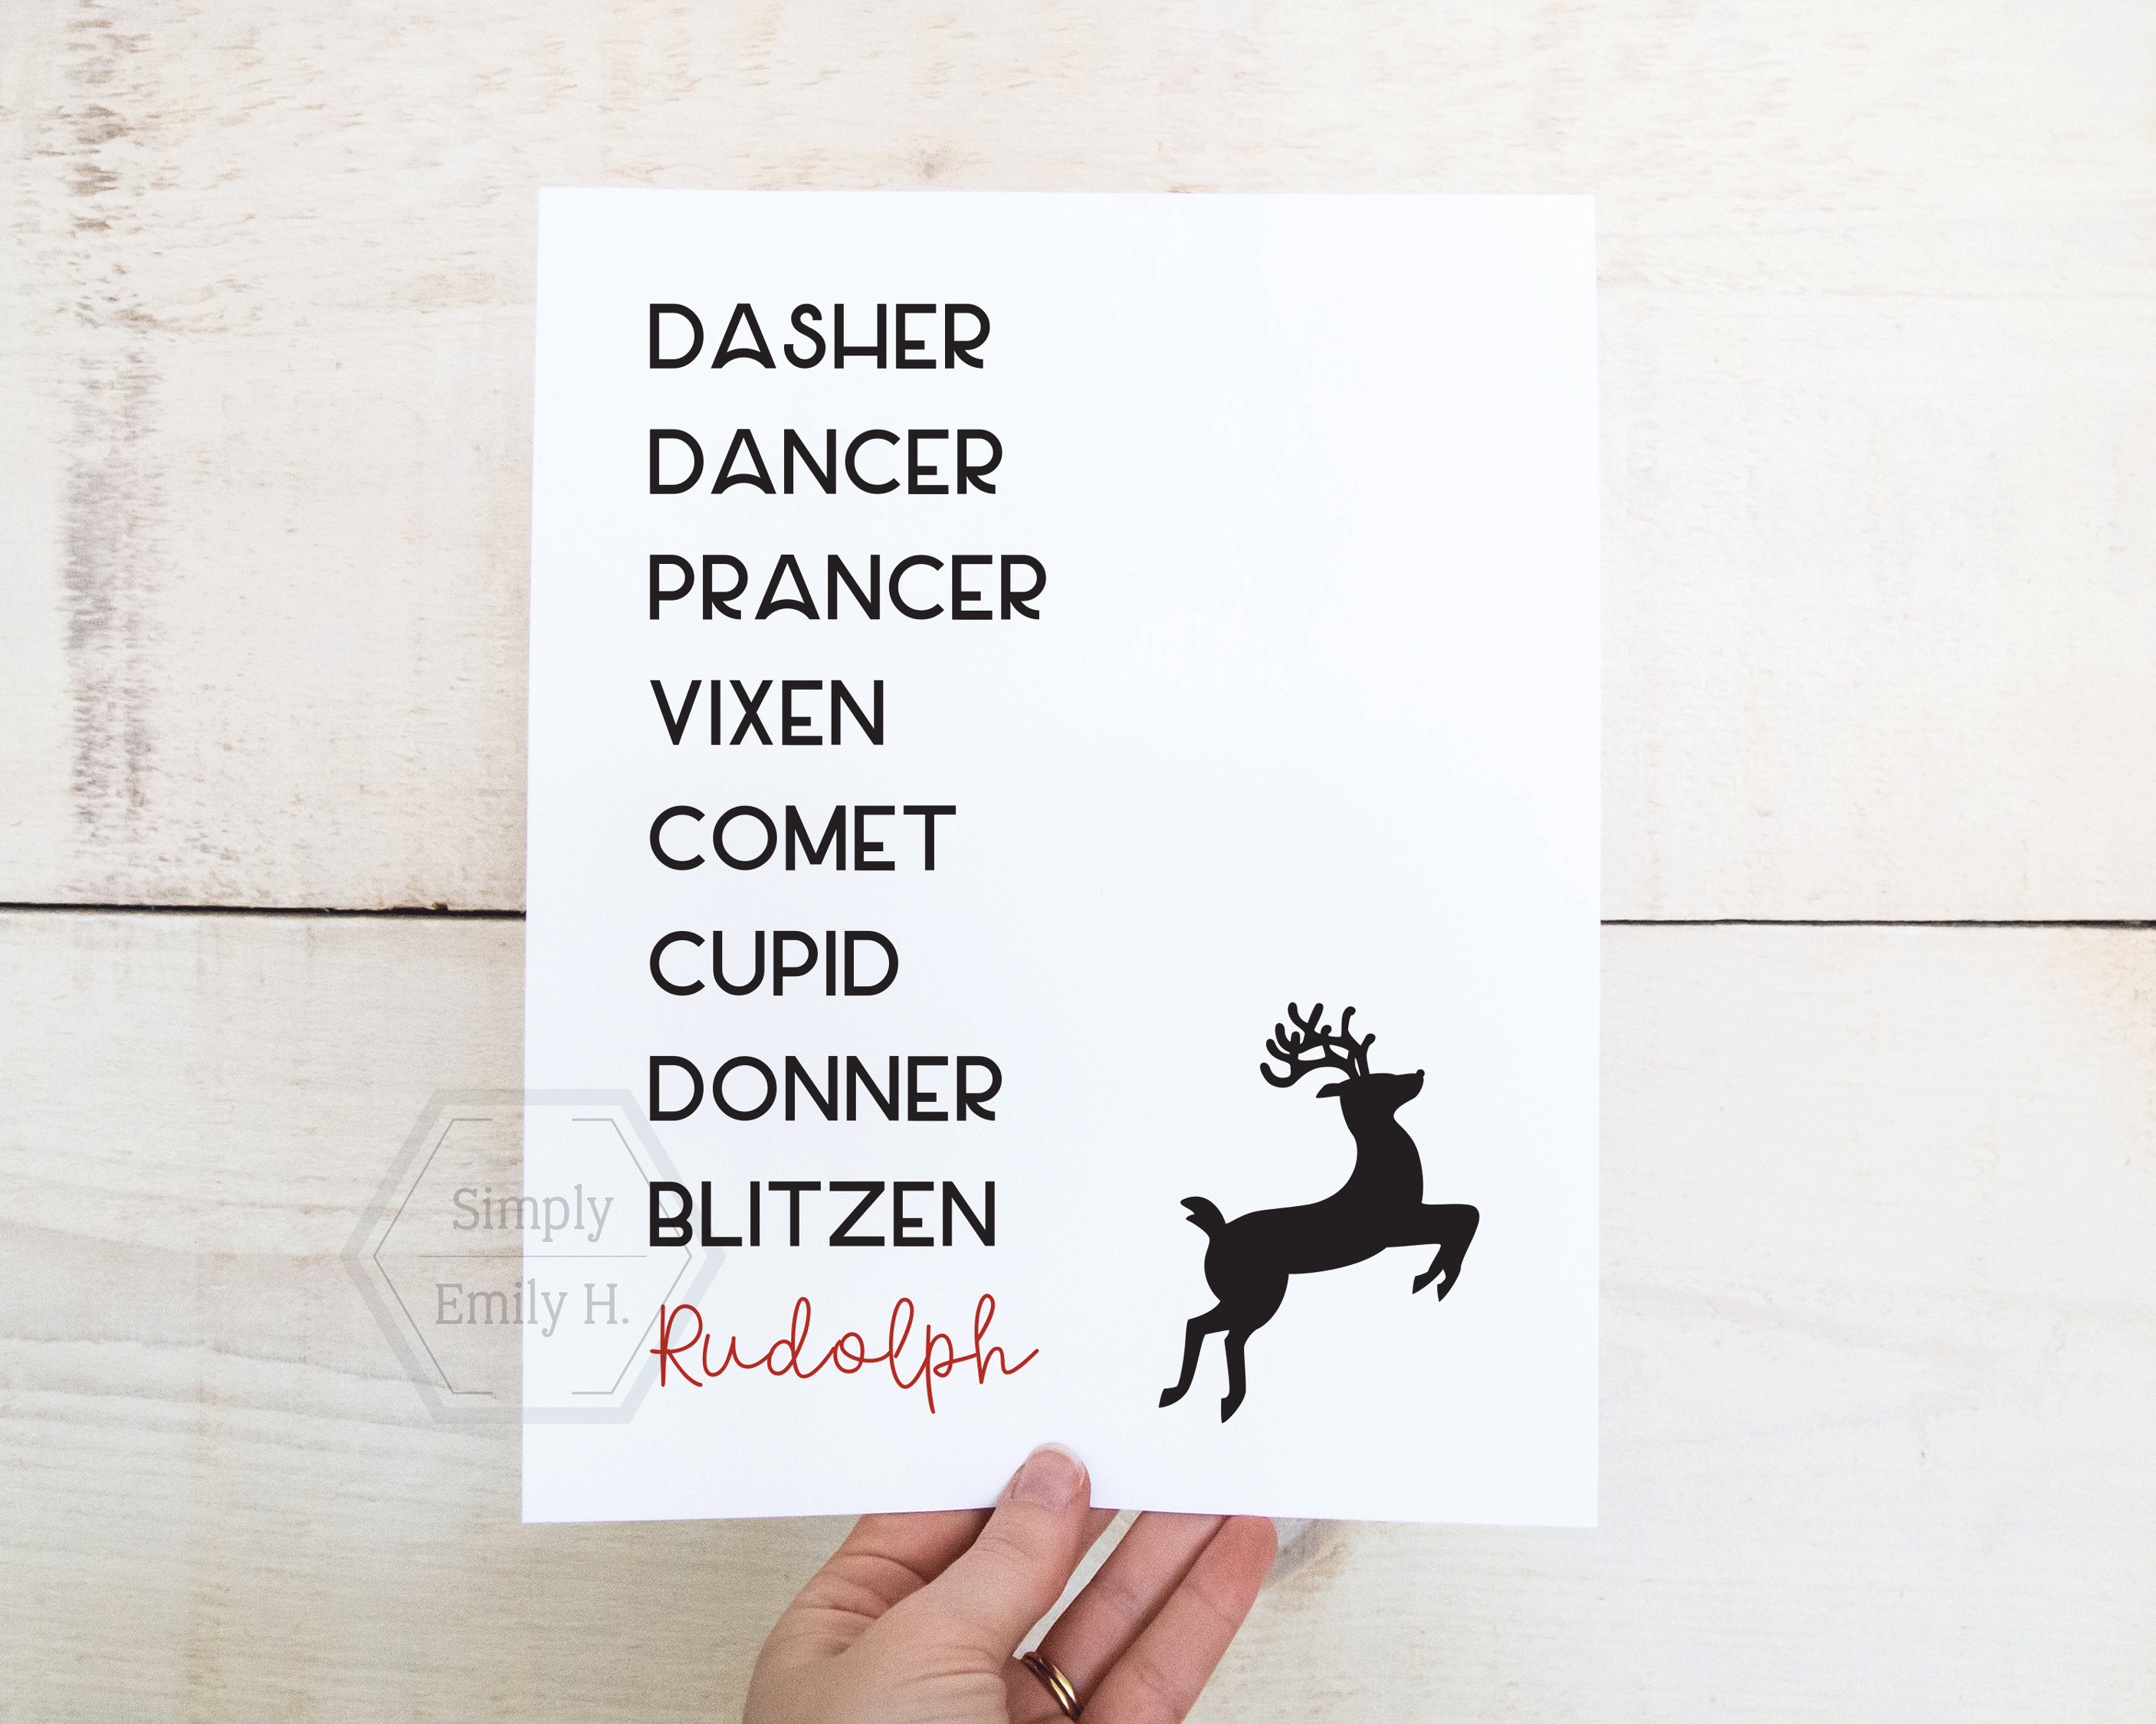 DASHER
DANCER
PRANCER
VIXEN
COMET
CUPID
DONNER
BLITZEN
Rudolph
Simply
Emily H.